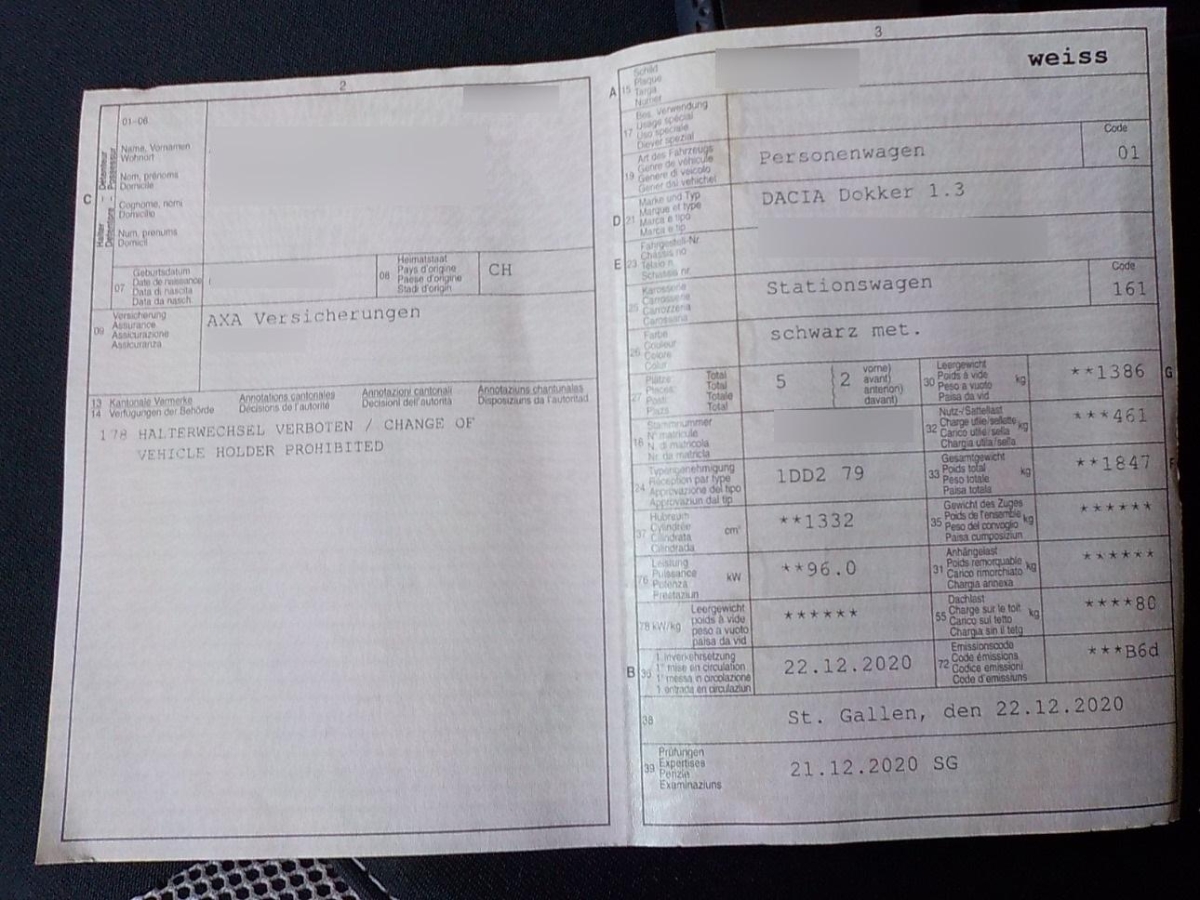 2
01-06
Name, Vornamen
Wohnort
Nom, prénoms
Domicile
Cognome, nomi
Domicilio
Num, prenums
Domicil
C
Halter – Détenteur
Detentore – Possessur
07
Geburtsdatum
Date de naissance
Data di nascita
Data da nasch.
08
Heimatstaat
Pays d'origine
Paese d'origine
Stadi d'origin
CH
09
Versicherung
Assurance
Assicurazione
Assicuranza
AXA Versicherungen
13 Kantonale Vermerke
14 Verfügungen der Behörde
Annotations cantonales
Décisions de l'autorité
Annotazioni cantonali
Decisioni dell'autorità
Annotaziuns chantunalas
Disposiziuns da l'autoritad
178 HALTERWECHSEL VERBOTEN / CHANGE OF
VEHICLE HOLDER PROHIBITED
3
weiss
A 15
Schild
Plaque
Targa
Numer
17
Bes. Verwendung
Usage spécial
Uso speciale
Diever spezial
19
Art des Fahrzeugs
Genre de véhicule
Genere di veicolo
Gener dal vehichel
Personenwagen
Code
01
D 21
Marke und Typ
Marque et type
Marca e tipo
Marca e tip
DACIA Dokker 1.3
E 23
Fahrgestell-Nr.
Châssis no
Telaio n.
Schassis nr.
25
Karosserie
Carrosserie
Carrozzeria
Carossaria
Stationswagen
Code
161
26
Farbe
Couleur
Colore
Colur
schwarz met.
27
Plätze Total
Places Total
Posti Totale
Plazs Total
5
2
vorne)
avant)
anteriori)
davant)
30
Leergewicht
Poids à vide
Peso a vuoto
Paisa da vid
kg
**1386
G
18
Stammnummer
N° matricule
N. di matricola
Nr. da matricla
32
Nutz-/Sattellast
Charge utile/sellette
Carico utile/sella
Chargia utila/sella
kg
***461
24
Typengenehmigung
Réception par type
Approvazione del tipo
Approvaziun dal tip
1DD2 79
33
Gesamtgewicht
Poids total
Peso totale
Paisa totala
kg
**1847
F
37
Hubraum
Cylindrée
Cilindrata
Cilindrada
cm³
**1332
35
Gewicht des Zuges
Poids de l'ensemble
Peso del convoglio
Paisa cumposiziun
kg
******
76
Leistung
Puissance
Potenza
Prestaziun
kW
**96.0
31
Anhängelast
Poids remorquable
Carico rimorchiato
Chargia annexa
kg
******
78 kW/kg
Leergewicht
poids à vide
peso a vuoto
paisa da vid
******
55
Dachlast
Charge sur le toit
Carico sul tetto
Chargia sin il tetg
kg
****80
B 36
1. Inverkehrsetzung
1re mise en circulation
1a messa in circolazione
1. entrada en circulaziun
22.12.2020
72
Emissionscode
Code émissions
Codice emissioni
Code d'emissiuns
***B6d
38
St. Gallen, den 22.12.2020
39
Prüfungen
Expertises
Perizie
Examinaziuns
21.12.2020 SG